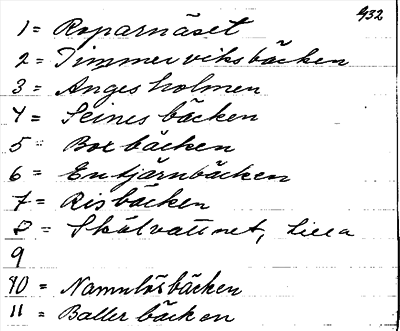 932
1 = Roparnäset
2 = Timmerviksbäcken
3 = Angesholmen
4 = Seinesbäcken
5 = Boxbäcken
6 = Entjärnbäcken
7 = Risbäcken
8 = Skålvattnet, Lilla
9
10 = Namnlösbäcken
11 = Ballerbäcken